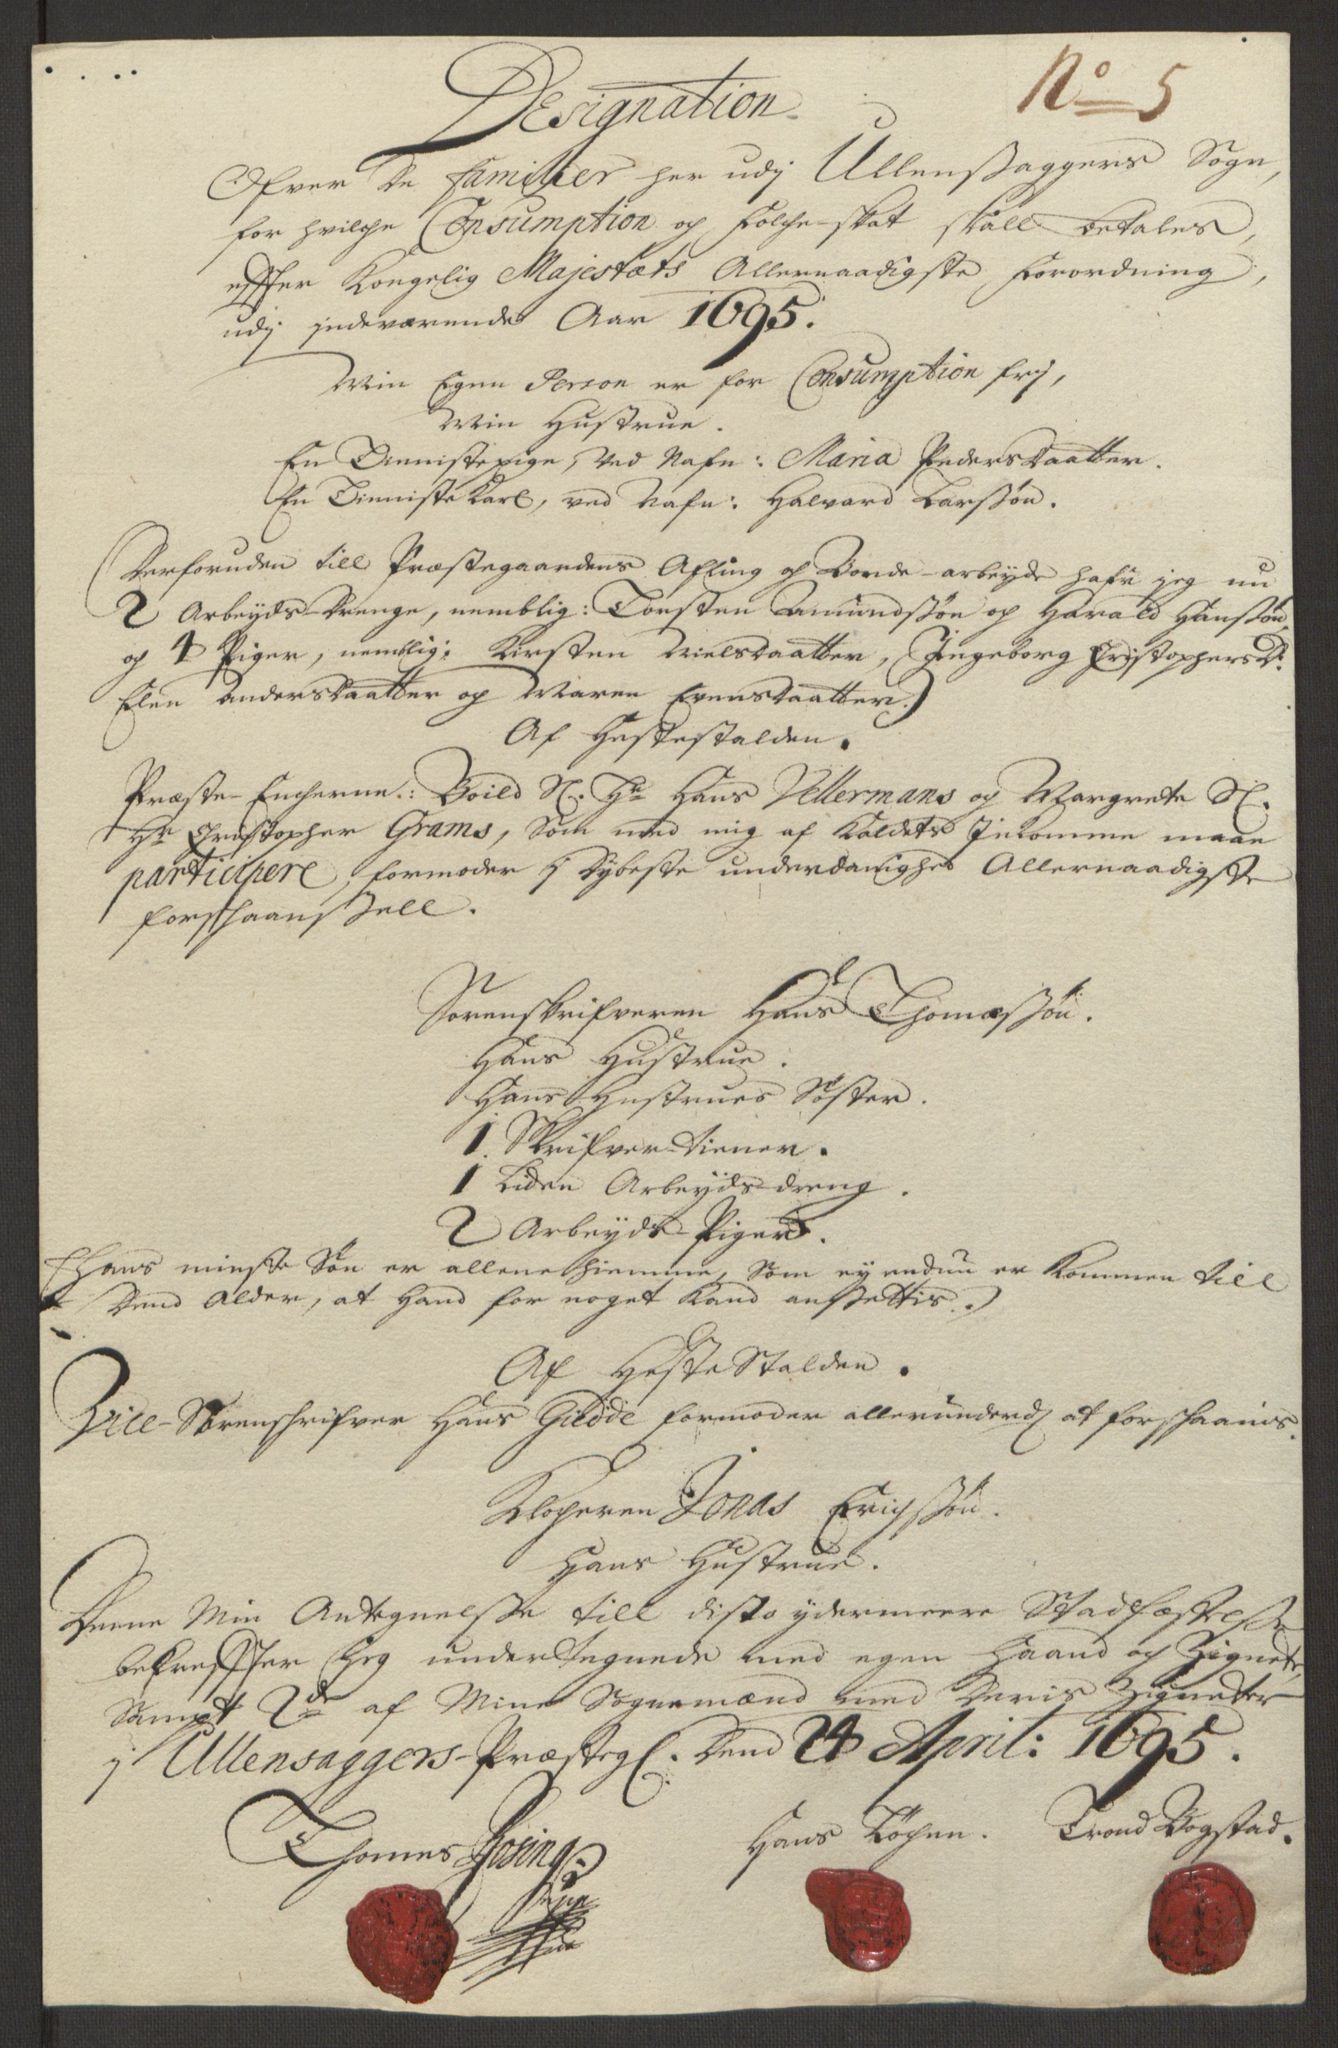 No 5
Designation
Ofver De Familier her udj Ullensaggers Sogn,
for hvilche Consumption og Folche-skat skall betales,
effter Kongelig Majestæts Allernaadigste Forordning,
udj indeværende Aar 1695.
Min Egen Person er for Consumption frj,
Min Hustrue.
En Tienistepige, Ved Nafn: Maria Pedersdaatter.
En Tieniste Karl, ved Nafn: Halvard Larssøn.
(Derforuden till Præstegaardens Afling og Bonde-arbeyde hafr jeg nu
2 Arbeyds-Drenge, nemblig: Torsten Amundssøn og Harald Hanssøn,
og 4 Piger, nemblig: Kirsten Nielsdaatter, Ingeborg Christophersd:
Elen Andersdaatter og Maren Evensdaatter.)
Af Hestestalden.
Præste-Encherne: Boild Sl. Hr Hans Vellermans og Margrete Sl.
Hr Christopher Grams, Som med mig af Kaldets Inkomme maae
participere, formoder j dybeste underdanighed Allernaadigste
forschaansell.
Sorenskrifveren Hans Thomæssøn.
Hans Hustrue.
Hans Hustrues Søster.
1 Skrifver-tiener.
1 Liden Arbeyds-dreng.
2 Arbeyds-Piger.
(Hans minste Søn er allene hiemme, Som ey endnu er Kommen till
Dend Alder, at Hand for noget Kand ansettis.)
Af HesteStalden.
Vice-Sorenschrifver Hans Gudde formoder allerunderd. at forschaanis.
Klocheren Jonas Erichssøn.
Hans Hustrue.
Denne Min Antegnelsse till disto ydermeere Stadfæstelsse
bekreffter Jeg undertegnede med egen Haand og Zignete,
Sampt 2de af Mine Sognemænd med Deris Zigneter
j Ullensaggers-Præstegl. Dend 24 April: 1695.
Thomes Rosing
Hans Løchen. Trond Bogstad.